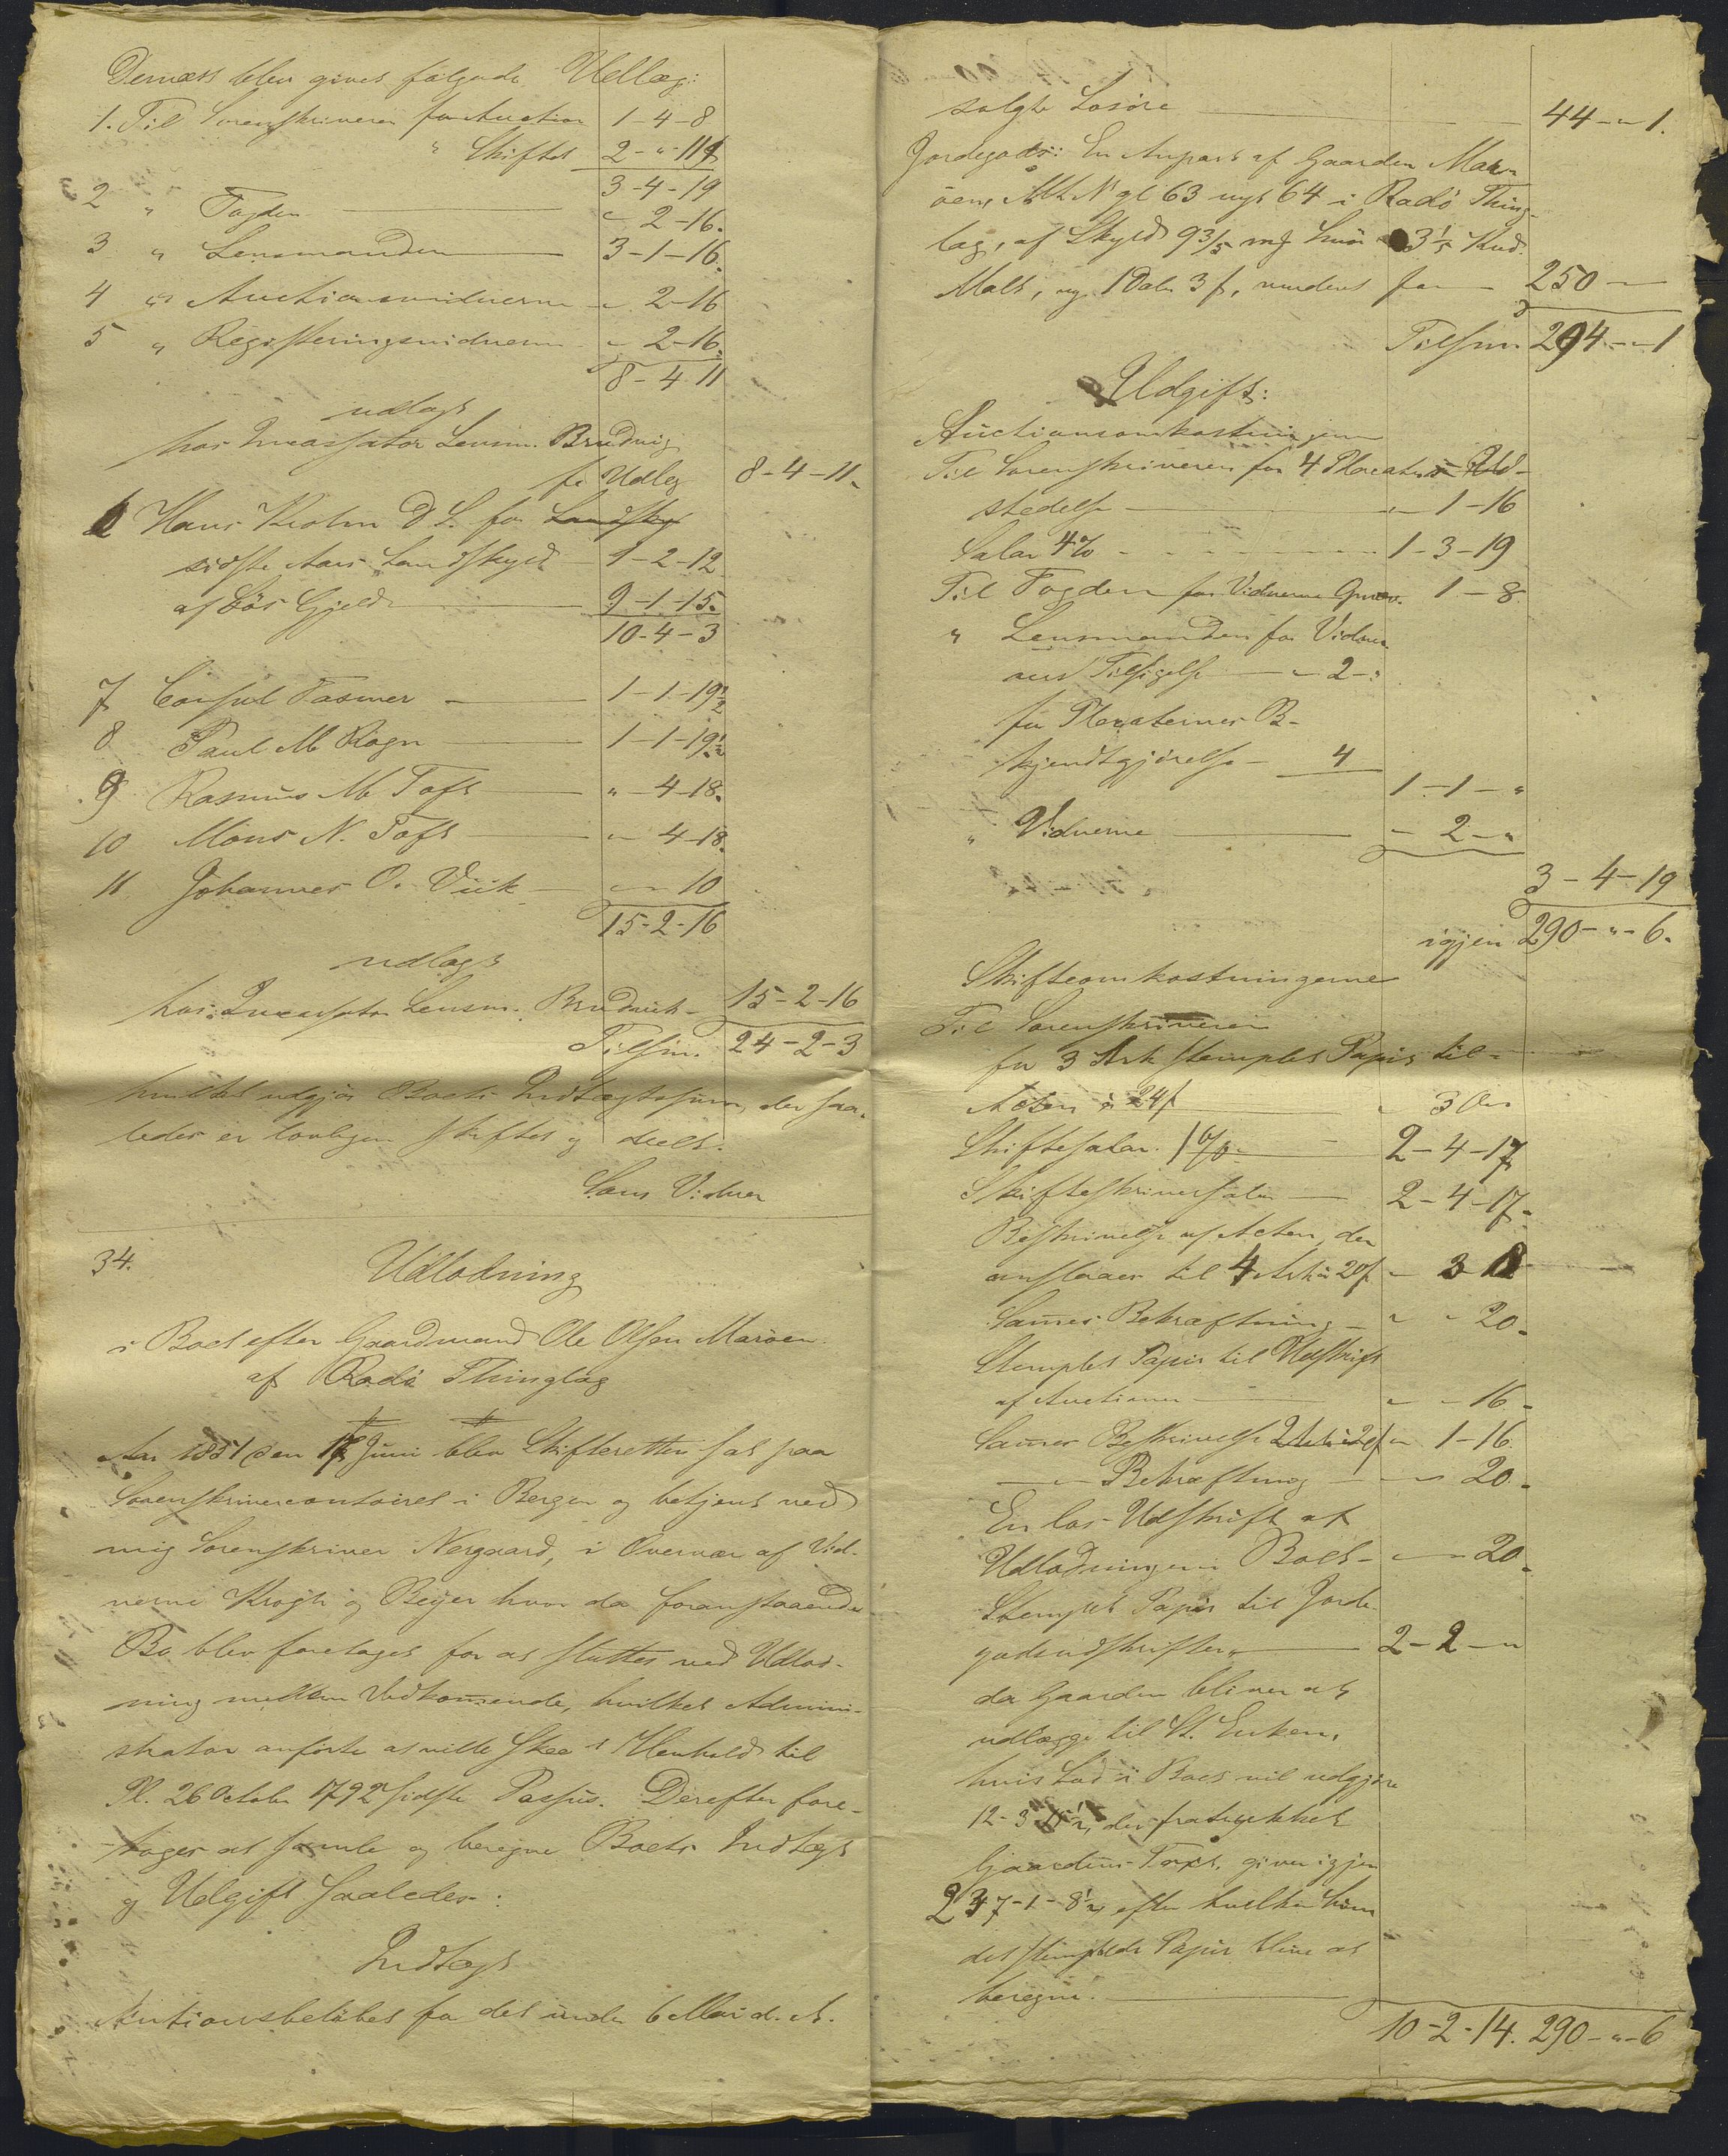 Dernæst blev givet følgende Udlæg:
1. Til Sorenskriveren for Auction 1-4-8
" Skiftet 2-"-11
3-4-19
2 " Fogden " 2-16.
3 " Lensmanden 3-1-16.
4 " Auctionsvidnerne " 2-16
5 " Registeringsvidnerne " 2-16.
8-4-11
udlagt
hos Incassator Lensm. Brudvig
for Udlæg 8-4-11.
6 Hans Krohn D. S. for Landskyl
sidste Aars Landskyld 1-2-12
af Løs Gjeld 9-1-15.
10-4-3
7 Consul Fasmer 1-1-19½
8 Paul M. Rogn 1-1-19½
9 Rasmus M. Toft "-4-18.
10 Mons N. Toft "-4-18.
11 Johannes O. Viik "-"-10
15-2-16
udlagt
hos Incassator Lensm. Brudvik 15-2-16
Tilsm. 24-2-3
hvilket udgjør Boets Indtægtssum, der saa-
ledes er lovligen skiftet og deelt.
Som Vidner
34.
Udlodning
i Boet efter Gaardmand Ole Olsen Marøen
af Radø Thinglag
Aar 1851 den Juni blev Skifteretten sat paa
Sorenskrivercontoiret i Bergen og betjent ved
mig Sorenskriver Nergaard, i Overvær af Vid-
nerne Krogh og Beyer hvor da foranstaaende
Bo blev foretaget for at sluttes ved Udlod-
ning mellem Vedkommende, hvilket Admini-
strator anførte at ville skee i Henhold til
Pl. 26 October 1792 sidste Passus. Derefter fore-
toges at samle og beregne Boets Indtægt
og Udgift saaledes:
Indtægt
Auctionsbeløbet for det under 6 Mai d. A.
solgte Løsøre 44-"-1.
Jordegods: En Anpart af Gaarden Mar-
øen, Mt. N gl 63 nyt 64 i Radø Thing-
lag, af Skyld 9 3/5 mk Smør 3 1/5 Kud.
Malt, ny 1 Daler 3 s, vurderet for 250 "
Tilsm. 294-"-1
Udgift:
Auctionsomkostningerne
Til Sorenskriveren for 4 Placaters Ud-
stedelse "-1-16
Salar 4% 1-3-19
Til Fogden for Vidnerne 1-8.
" Lensmanden for Vidner
nes Tilsigelse "-2-"
for Placaternes B-
kjendtgjørelse 4
1-1-"
" Vidnerne "-2-"
3-4-19
igjen 290-"-6.
Skifteomkostningerne
Til Sorenskriveren
for 3 Ark stemplet Papir til
Acten à 24 s " 3
Skiftesalar. 1% 2-4-17
Skifteskriversalar 2-4-17.
Beskrivelse af Acten, der
ansláaes til 4 Ark à 20 s " 3
Sammes Bekræftning " " 20.
Stemplet Papir til Udskrift
af Auctionen " " 16.
Sammes Beskrivelse 2 Ark à 20 s " 1-16
" Bekræftning " " 20.
En løs Udskrift af
Udlodningen i Boet " " 20.
Stemplet Papir til Jorde
godsudskriften 2-2-"
da Gaarden bliver at
udlægge til St. Enken,
hvis Lod i Boet vil udgjøre
12-3 ½, der fratrukket
Gaardens Taxt, giver igjen
237-1-8½, efter hvilken Sum
det stemplede Papir bliver at
beregne.
10-2-14. 290-"-6